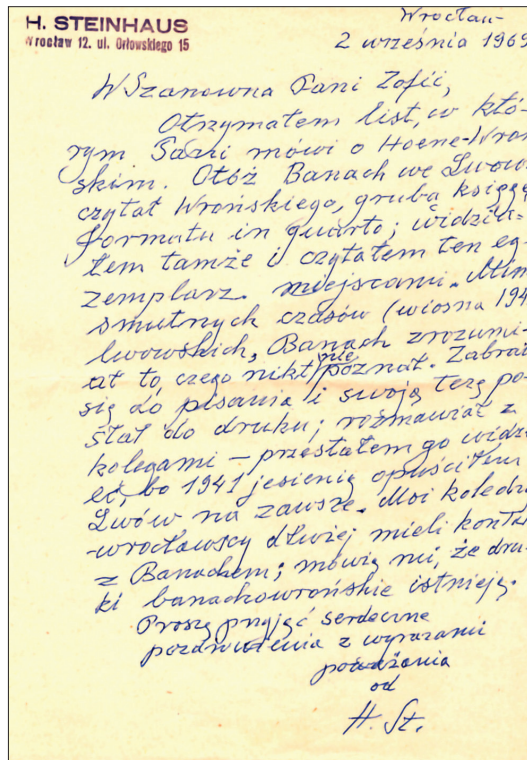 H. STEINHAUS
Wrocław 12. ul. Orłowskiego 15
Wrocław
2 września 1969
WSzanowna Pani Zofio,
Otrzymałem list, w któ-
rym Pani mówi o Hoene-Wroń
skim. Otóż Banach we Lwow
czytał Wrońskiego, grubą księgę
formatu in quarto; widzia-
łem tamże i czytałem ten eg-
zemplarz miejscami. Mim
smutnych czasów (wiosna 194
lwowskich, Banach zrozumi-
ał to, czego nikt nie poznał. Zabrał
się do pisania i swoją tezę po-
słał do druku; rozmawiał z
kolegami — przestałem go widzi
eć, bo 1941 jesienią opuściłem
Lwów na zawsze. Moi koledz
-wrocławscy dłużej mieli kontk
z Banachem; mówią mi, że dru-
ki banachowrońskie istnieją.
Proszę przyjąć serdeczne
pozdrowienia z wyrazami
poważania
od
H. St.